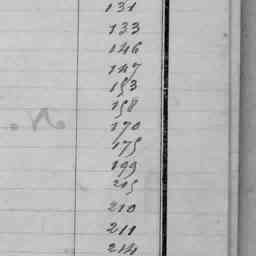 131
133
146
147
153
158
170
175
199
215
210
211
214